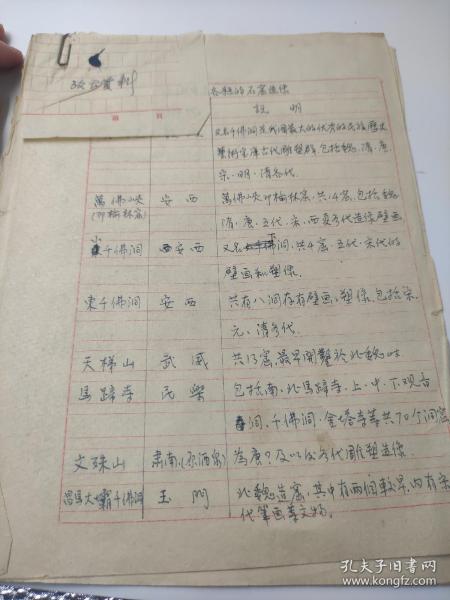 各縣的石窟造像
說 明
又名千佛洞是我国最大的优秀的民族歷史
藝術宝庫古代雕塑群,包括魏、隋、唐、
宋、明、清各代
萬佛峡 安西 萬佛峡即榆林窟,共 窟,包括魏
(即榆林窟) 隋、唐、五代、宋、西夏各代造像壁畫
小千佛洞 安西 又名下洞,共4窟,五代、宋代的
壁画和塑像.
東千佛洞 安西 共有八洞存有壁画、塑像,包括宋
元、清各代.
天梯山 武威 共13窟,最早開鑿於北魏時
馬蹄寺 民樂 包括南、北馬蹄寺、上、中、下观音
洞、千佛洞、金塔寺等共70个洞窟
文殊山 肃南(原酒泉) 為唐?及以後各代雕塑造像.
昌馬大壩千佛洞 玉門 北魏造窟,其中有两個較早,内有宋
代筆画等文物。
孔夫子旧书网
www.kongfz.com